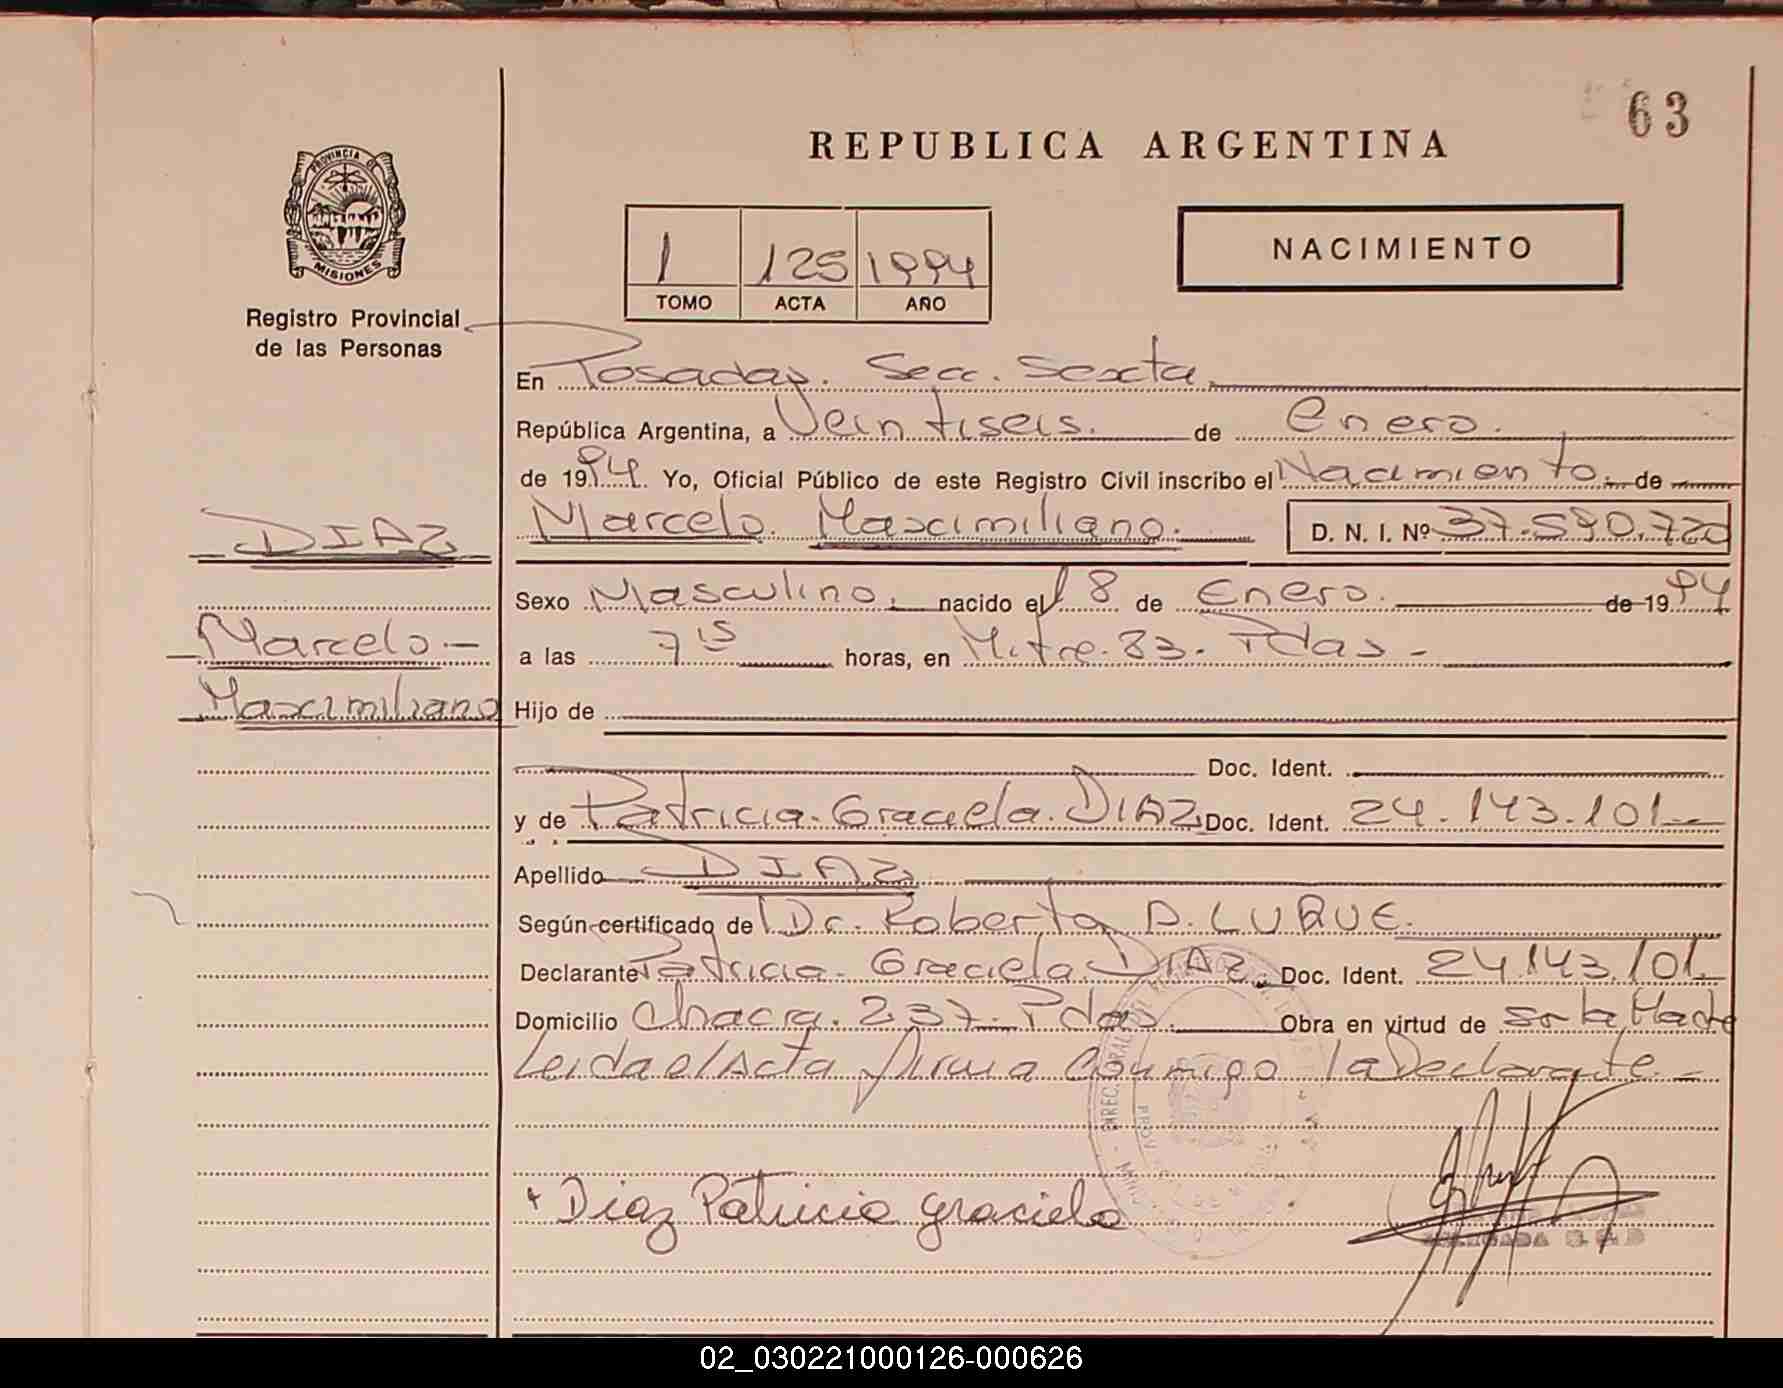 63
REPUBLICA ARGENTINA
PROVINCIA DE
MISIONES
Registro Provincial
de las Personas
1 125 1994
TOMO ACTA AÑO
NACIMIENTO
En Posadas. Secc. Sexta
República Argentina, a Veintiseis. de Enero.
de 1994. Yo, Oficial Público de este Registro Civil inscribo el Nacimiento. de
DIAZ
Marcelo. Maximiliano. D. N. I. Nº 37.590.720
Sexo Masculino. nacido el 18 de Enero. de 1994
Marcelo.-
a las 7 15 horas, en Mitre. 83. Pdas -
Maximiliano
Hijo de
Doc. Ident.
y de Patricia. Graciela. DIAZ Doc. Ident. 24.143.101-
Apellido DIAZ
Según certificado de Dr. Roberto A. LUQUE.
Declarante Patricia. Graciela. DIAZ. Doc. Ident. 24.143.101.
Domicilio Chacra. 237. Pdas. Obra en virtud de ser la Madre
Leida el Acta firma Conmigo la Declarante.-
Diaz Patricia Graciela
DELEGADA
02_030221000126-000626